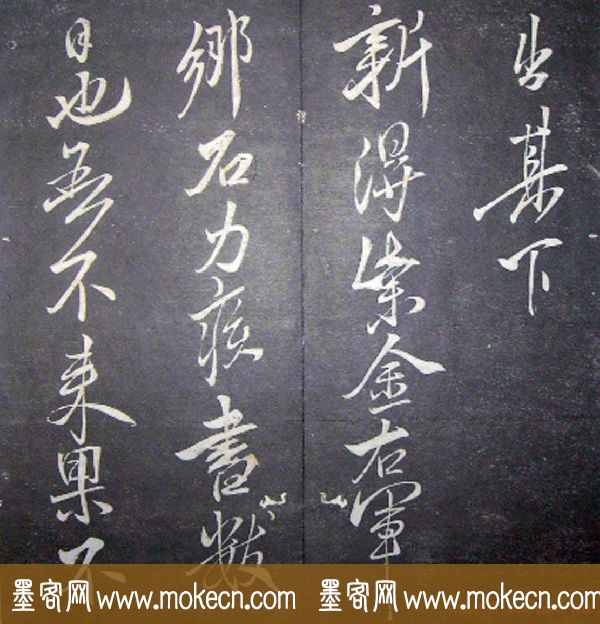 出某下
新得紫金右軍
鄉石力疾書數
日也吾不来果不
墨客网 www.mokecn.com 墨客网 www.mokecn.com